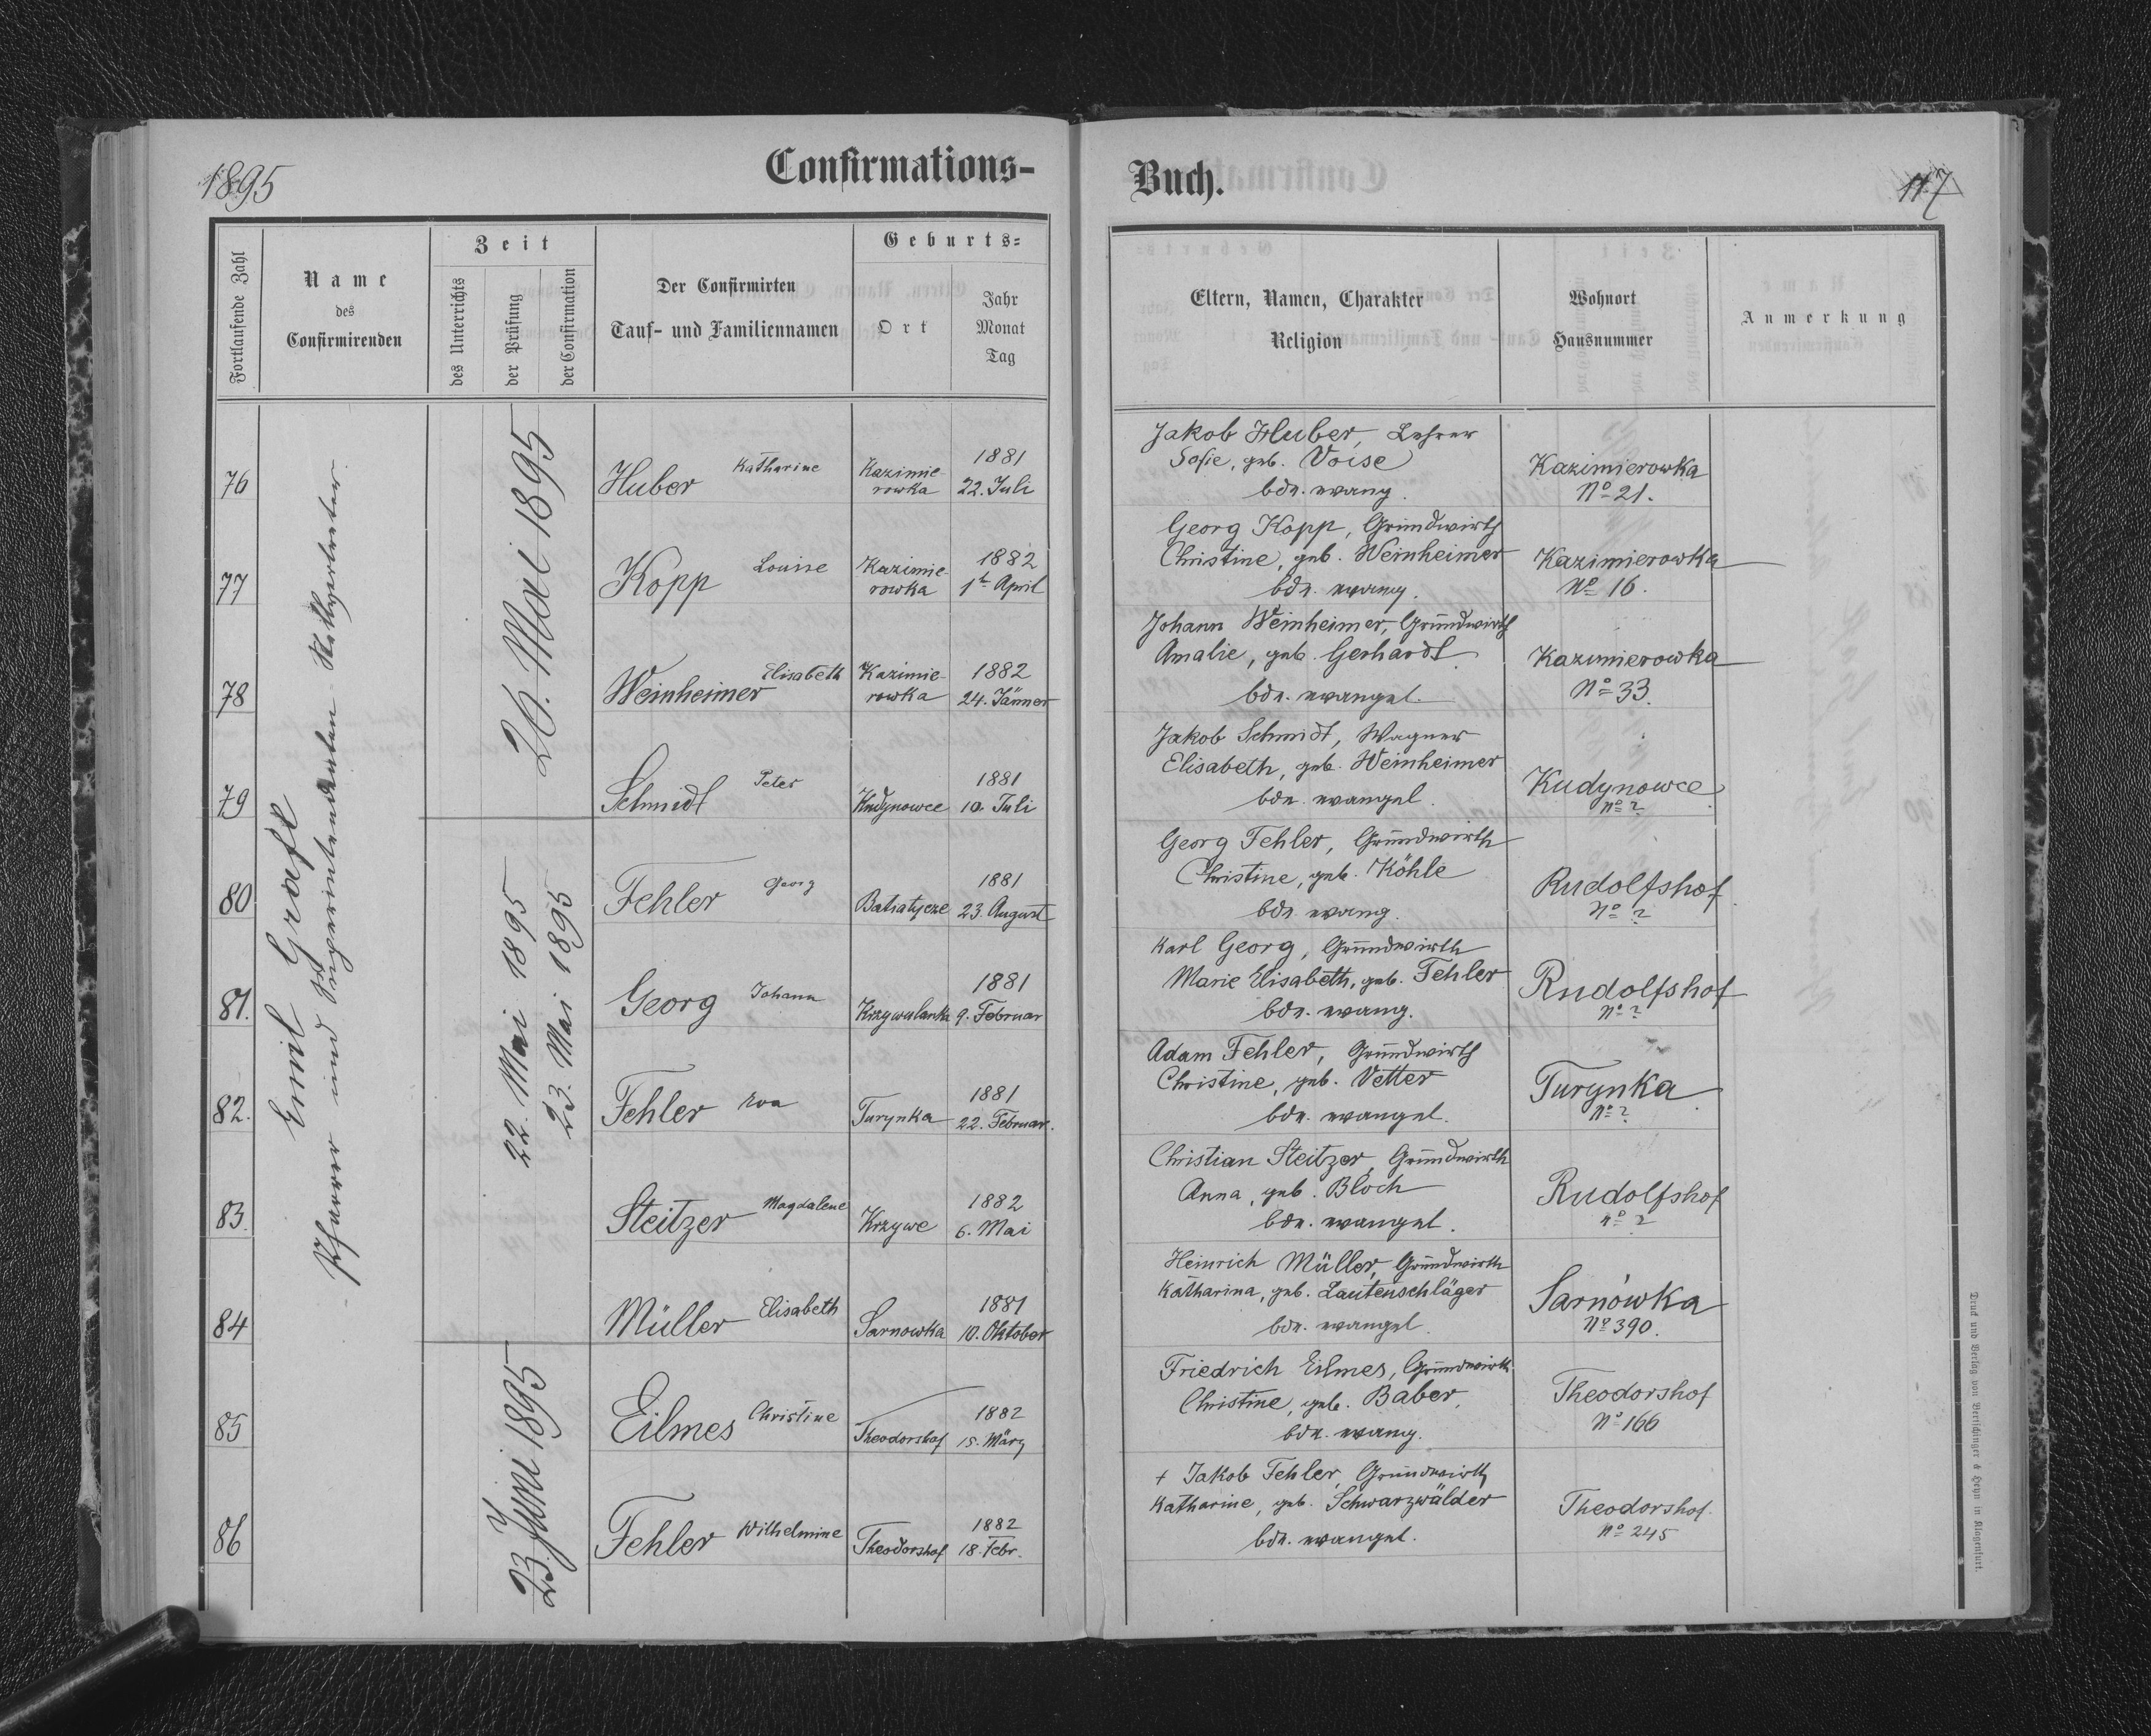 1895
Confirmations-
Buch.
117
Fortlaufende Zahl
Name
des
Confirmirenden
Zeit
des Unterrichts
der Prüfung
der Confirmation
Der Confirmirten
Tauf- und Familiennamen
Geburts-
Ort
Jahr
Monat
Tag
Eltern, Namen, Charakter
Religion
Wohnort
Hausnummer
Anmerkung
Emil Graft
Pfarrer und Superintendenten-Stellvertreter
26. Mai 1895
76
Huber Katharine
Kazimie-
rowka
1881
22. Juli
Jakob Huber, Lehrer
Sofie, geb. Voise
bde. evang.
Kazimierowka
No 21.
77
Kopp Louise
Kazimie-
rowka
1882
1t April
Georg Kopp, Grundwirth
Christine, geb. Weinheimer
bde. evang.
Kazimierowka
No 16.
78
Weinheimer Elisabeth
Kazimie-
rowka
1882
24. Jänner
Johann Weinheimer, Grundwirth
Amalie, geb. Gerhardt
bde. evangel.
Kazimierowka
No 33.
79
Schmidt Peter
Kudynowce
1881
10. Juli
Jakob Schmidt, Wagner
Elisabeth, geb. Weinheimer
bde. evangel.
Kudynowce
No ?
22. Mai 1895
23. Mai 1895
80
Fehler Georg
Batiatycze
1881
23. August
Georg Fehler, Grundwirth
Christine, geb. Köhle
bde. evang.
Rudolfshof
No ?
81.
Georg Johann
Krzywulanka
1881
9. Februar
Karl Georg, Grundwirth
Marie Elisabeth, geb. Fehler
bde. evang.
Rudolfshof
No ?
82.
Fehler Eva
Turynka
1881
22. Februar.
Adam Fehler, Grundwirth
Christine, geb. Vetter
bde. evangel.
Turynka
No ?
83.
Steitzer Magdalene
Krzywe
1882
6. Mai
Christian Steitzer, Grundwirth
Anna, geb. Bloch
bde. evangel.
Rudolfshof
No ?
84
Müller Elisabeth
Sarnowka
1881
10. Oktober
Heinrich Müller, Grundwirth
Katharina, geb. Lautenschläger
bde. evangel.
Sarnówka
No 390.
23. Juni 1895
85
Eilmes Christine
Theodorshof
1882
15. März
Friedrich Eilmes, Grundwirth
Christine, geb. Baber,
bde. evang.
Theodorshof
No 166
86
Fehler Wilhelmine
Theodorshof
1882
18. Febr.
† Jakob Fehler, Grundwirth
Katharine, geb. Schwarzwälder
bde. evangel.
Theodorshof.
No 245
Druck und Verlag von Bertschinger & Heyn in Klagenfurt.